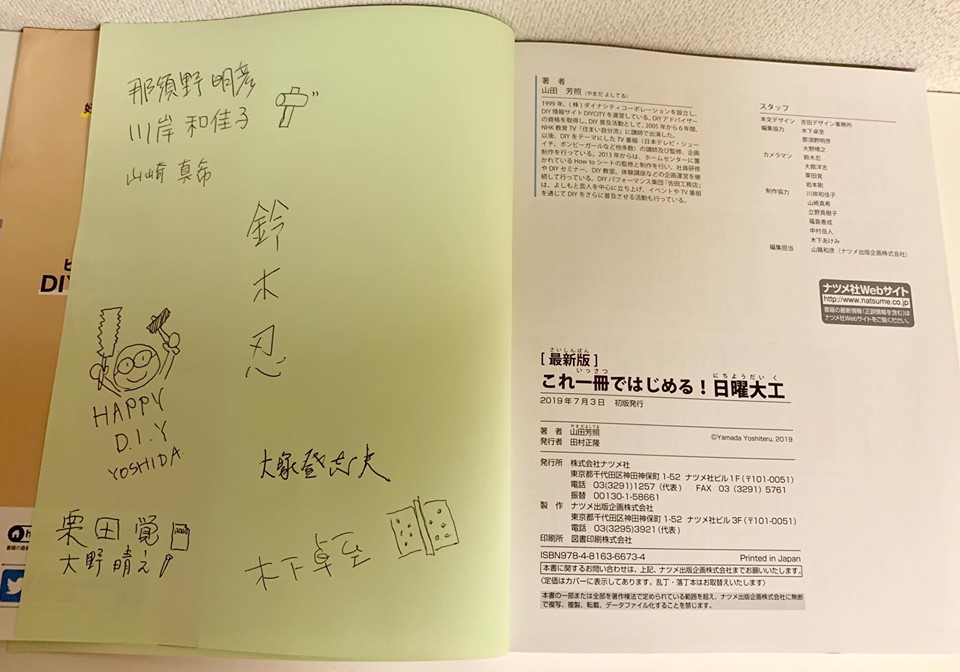 那須野明彦
川岸 和佳子
山崎 真希
鈴木忍
HAPPY
D.I.Y
YOSHIDA
大塚登志夫
栗田 覚
大野晴之
木下卓至
DIY
著 者
山田 芳照（やまだ よしてる）
1999年、（株）ダイナシティコーポレーションを設立し、
DIY情報サイトDIYCITYを運営している。DIYアドバイザー
の資格を取得し、DIY普及活動として、2005年から6年間、
NHK教育TV「住まい自分流」に講師で出演した。
以後、DIYをテーマにしたTV番組（日本テレビ・シュー
イチ、ボンビーガールなど他多数）の講師及び監修、企画
制作を行っている。2013年からは、ホームセンターに置
かれているHow toシートの監修と制作を行い、社員研修
やDIYセミナー、DIY教室、体験講座などの企画運営を継
続して行っている。DIYパフォーマンス集団「佐田工務店」
は、よしもと芸人を中心に立ち上げ、イベントやTV番組
を通じてDIYをさらに普及させる活動も行っている。
スタッフ
本文デザイン 吉田デザイン事務所
編集協力 木下卓至
那須野明彦
大野晴之
カメラマン 鈴木忍
大塚洋志
栗田覚
岩本剛
制作協力 川岸和佳子
山崎真希
立野真樹子
福島善成
中村岳人
木下あけみ
編集担当 山路和彦（ナツメ出版企画株式会社）
ナツメ社Webサイト
http://www.natsume.co.jp
書籍の最新情報（正誤情報を含む）は
ナツメ社Webサイトをご覧ください。
さいしんばん
［最新版］
いっさつ にちようだいく
これ一冊ではじめる！日曜大工
2019年7月3日 初版発行
やまだよしてる
著 者 山田芳照 ©Yamada Yoshiteru, 2019
発行者 田村正隆
発行所 株式会社ナツメ社
東京都千代田区神田神保町1-52 ナツメ社ビル1F（〒101-0051）
電話 03(3291)1257（代表） FAX 03（3291）5761
振替 00130-1-58661
製 作 ナツメ出版企画株式会社
東京都千代田区神田神保町1-52 ナツメ社ビル3F（〒101-0051）
電話 03(3295)3921（代表）
印刷所 図書印刷株式会社
ISBN978-4-8163-6673-4 Printed in Japan
本書に関するお問い合わせは、上記、ナツメ出版企画株式会社までお願いいたします。
〈定価はカバーに表示してあります。乱丁・落丁本はお取替えいたします〉
本書の一部または全部を著作権法で定められている範囲を超え、ナツメ出版企画株式会社に無断
で複写、複製、転載、データファイル化することを禁じます。